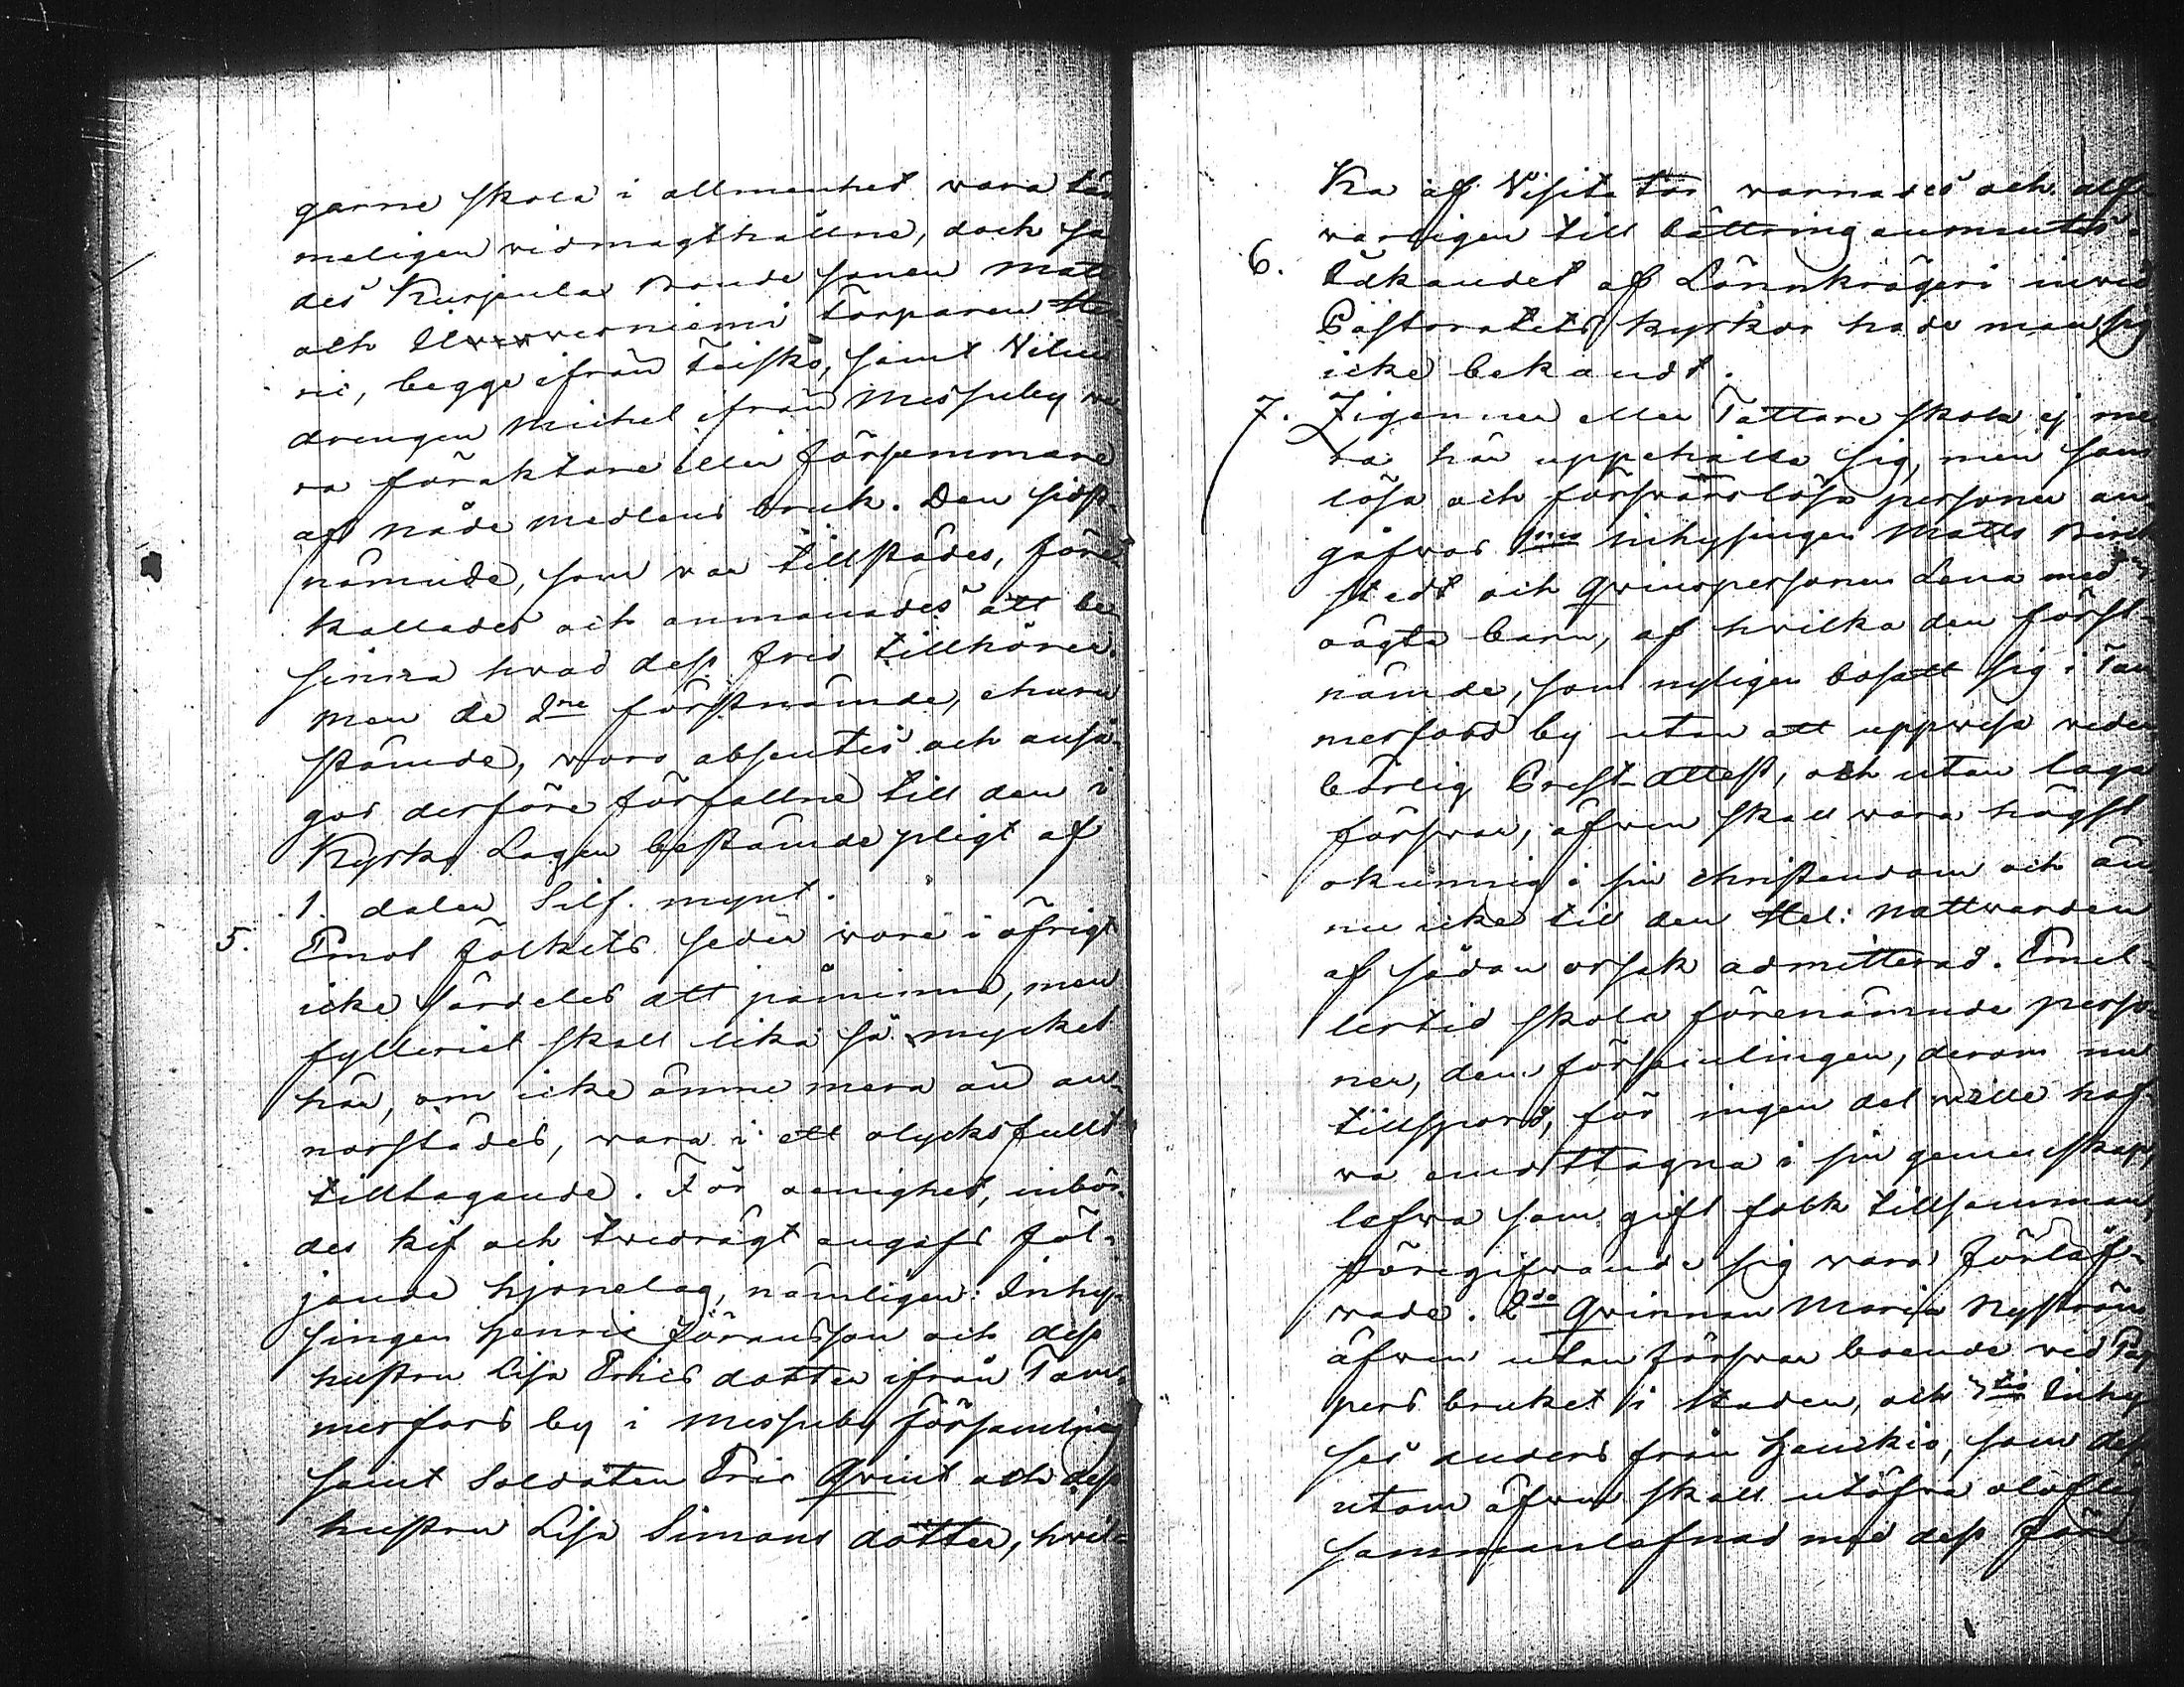 garne skola i allmenhet vara tå-
meligen vidmagthållne, doch sa
des Kurjenla Bonde sonen Matts
och torparen Hen-
ric, begge ifrån Teisko, samt
drengen Michel ifrån Messuby wa-
ra föraktare eller försummare
af nåde medlens bruk. Den sidst-
nämnde, som var tillstädes, före
kallades och anmanades att be
sinna hvad dess frid tillhörer.
Men de 2ne förstnämnde, ehuru
stämde, woro absentes och anså-
gos derföre förfallne till den i
Kyrko Lagen bestämde pligt af
1. daler Silf. mynt.
5. Emot folkets seder wore i öfrigt
icke särdeles att påminna, men
fylleriet skall lika så mycket
här, om icke ännu mera än an-
norstädes, wara i ett olycksfullt
tilltagande. För oenighet, inbör-
des kif och twedrägt angafs föl-
jande hjonelag, nämligen: Inhy-
singen Henric Göransson och dess
hustru Lisa Erics dotter ifrån Tam-
merfors by i Messuby församling
samt Soldaten Eric Qvint och dess
hustru Lisa Simons dotter, hvil-
ka af Visitator warnades och all-
warligen till bättring anmantes.
6. Idkandet af Lönnkrögeri inwid
Pastoratets kyrkor hade man sig
icke bekandt.
7. Zigenner eller Tattare skola ej me
ra här uppehålla sig, men som
lösa och förswarslösa personer an-
gåfwos 1mo inhysingen Matts
stedt och Qvinspersonen Lena med
oägta barn, af hvilka den först-
nämde, som nyligen bosatt sig i Tam
merfors by utan att uppwisa weder
börlig Prest-Attest, och utan laga
förswar, äfwen skall wara högst
okunnig i sin christendom och än
nu icke till den Hel: Nattwarden
af sådan orsak admitterad. Emel-
lertid skola förenämnde perso-
ner, dem församlingen, derom nu
tillspord, för ingen del wille haf-
wa emottagna i sin gemenskap,
lefwa som gift folk tillsamman,
föregifwande sig wara förlof-
wade. 2do Qvinnan Maria Nyström
äfwen utan förswar boende wid Pap
pers bruket i staden, och 3tio Inhy
ses Anders från Hauckio, som dess
utom äfwen skall utöfva oloflig
sammanlefnad med dess före